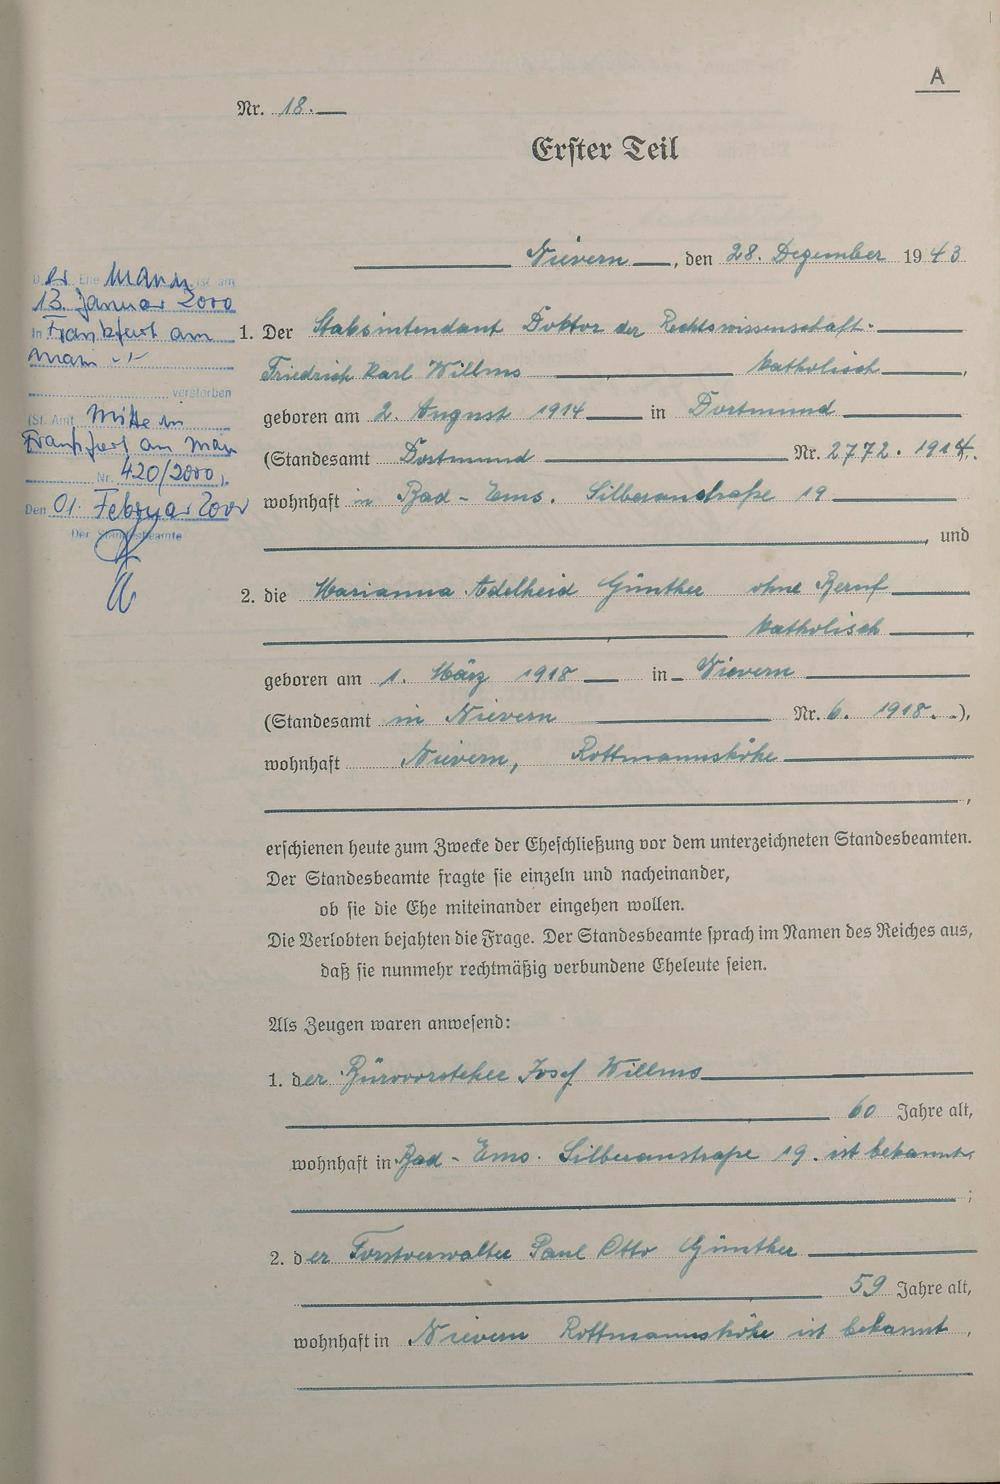 A
Nr. 18.
Erster Teil
Nievern, den 28. Dezember 1943
1. Der Stabsintendant Doktor der Rechtswissenschaft.
Friedrich Karl Willms katholisch,
geboren am 2. August 1914 in Dortmund
(Standesamt Dortmund Nr. 2772. 1914.
wohnhaft in Bad-Ems. Silberaustraße 19
, und
2. die Marianna Adelheid Günther ohne Beruf
katholisch,
geboren am 1. März 1918 in Nievern
(Standesamt in Nievern Nr. 6. 1918.),
wohnhaft Nievern, Rottmannshöhe
,
erschienen heute zum Zwecke der Eheschließung vor dem unterzeichneten Standesbeamten.
Der Standesbeamte fragte sie einzeln und nacheinander,
ob sie die Ehe miteinander eingehen wollen.
Die Verlobten bejahten die Frage. Der Standesbeamte sprach im Namen des Reiches aus,
daß sie nunmehr rechtmäßig verbundene Eheleute seien.
Als Zeugen waren anwesend:
1. der Bürovorsteher Josef Willms
60 Jahre alt,
wohnhaft in Bad-Ems. Silberaustraße 19. ist bekannt,
;
2. der Forstverwalter Paul Otto Günther
59 Jahre alt,
wohnhaft in Nievern Rottmannshöhe ist bekannt,
Der Ehemann ist am
13. Januar 2000
in Frankfurt am
Main -/-
verstorben
(St. Amt Mitte in
Frankfurt am Main
Nr. 420/2000).
Den 01. Februar 2000
Der Standesbeamte